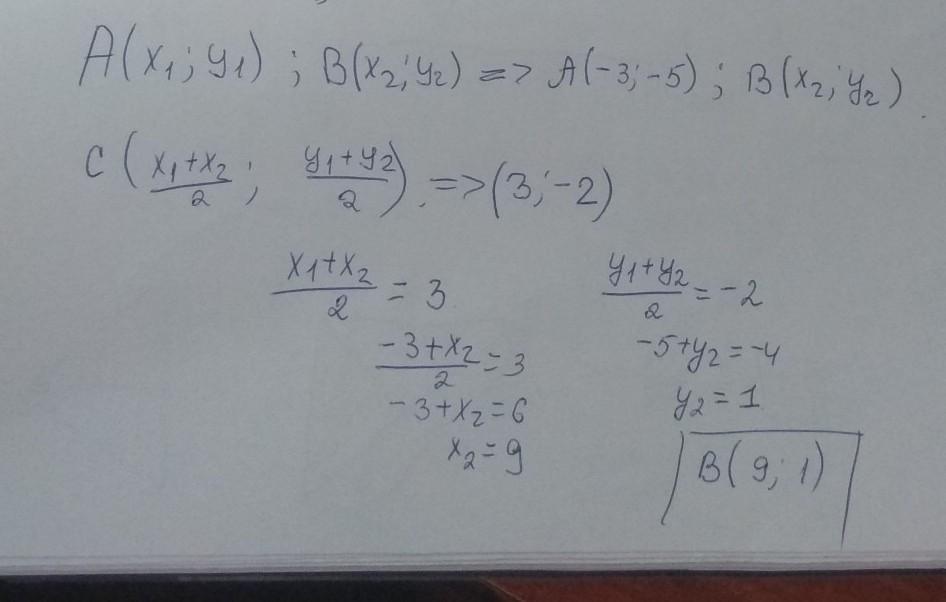 A(x₁; y₁) ; B(x₂; y₂) => A(-3; -5) ; B(x₂; y₂)
C((x₁+x₂)/2 ; (y₁+y₂)/2) => (3; -2)
(x₁+x₂)/2 = 3
(-3+x₂)/2 = 3
-3+x₂=6
x₂=9
(y₁+y₂)/2 = -2
-5+y₂=-4
y₂=1
B(9; 1)